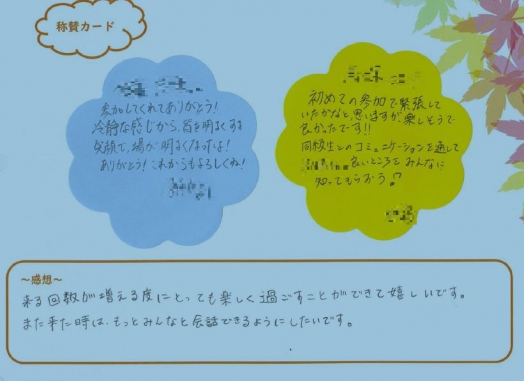 称賛カード
参加してくれてありがとう!
冷静な感じから、皆を明るくする
笑顔で、場が明るくなったよ!
ありがとう!これからもよろしくね!
初めての参加で緊張して
いたかなと、思いますが、楽しそうで
良かったです!!
同級生とのコミュニケーションを通して
良いところをみんなに
知ってもらおう!?
~感想~
来る回数が増える度にとっても楽しく過ごすことができて嬉しいです。
また来た時は、もっとみんなと会話できるようにしたいです。